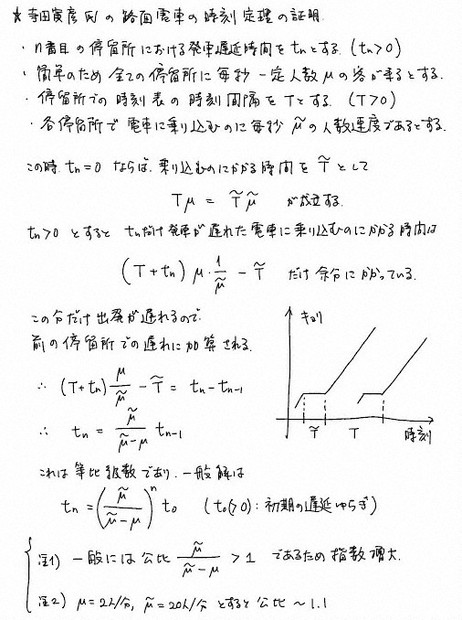 ★ 寺田寅彦氏の路面電車の時刻定理の証明.
・n番目の停留所における発車遅延時間をtnとする. (tn>0)
・簡単のため全ての停留所に毎秒一定人数μの客が来るとする.
・停留所での時刻表の時刻間隔をTとする. (T>0)
・各停留所で電車に乗り込むのに毎秒 μ̃ の人数速度であるとする.
この時, tn=0 ならば, 乗り込むのにかかる時間を T̃ として
Tμ = T̃ μ̃ が成立する.
tn>0 とすると tnだけ発車が遅れた電車に乗り込むのにかかる時間は
(T+tn) μ・1/μ̃ − T̃ だけ余分にかかっている.
この分だけ出発が遅れるので
前の停留所での遅れに加算される.
∴ (T+tn) μ/μ̃ − T̃ = tn − tn-1
∴ tn = μ̃/(μ̃−μ) tn-1
キョリ
T̃ T 時刻
これは等比級数であり, 一般解は
tn = (μ̃/(μ̃−μ))^n t0 (t0(>0): 初期の遅延ゆらぎ)
注1) 一般には公比 μ̃/(μ̃−μ) > 1 であるため指数増大.
注2) μ=2人/分, μ̃=20人/分 とすると公比 ~1.1